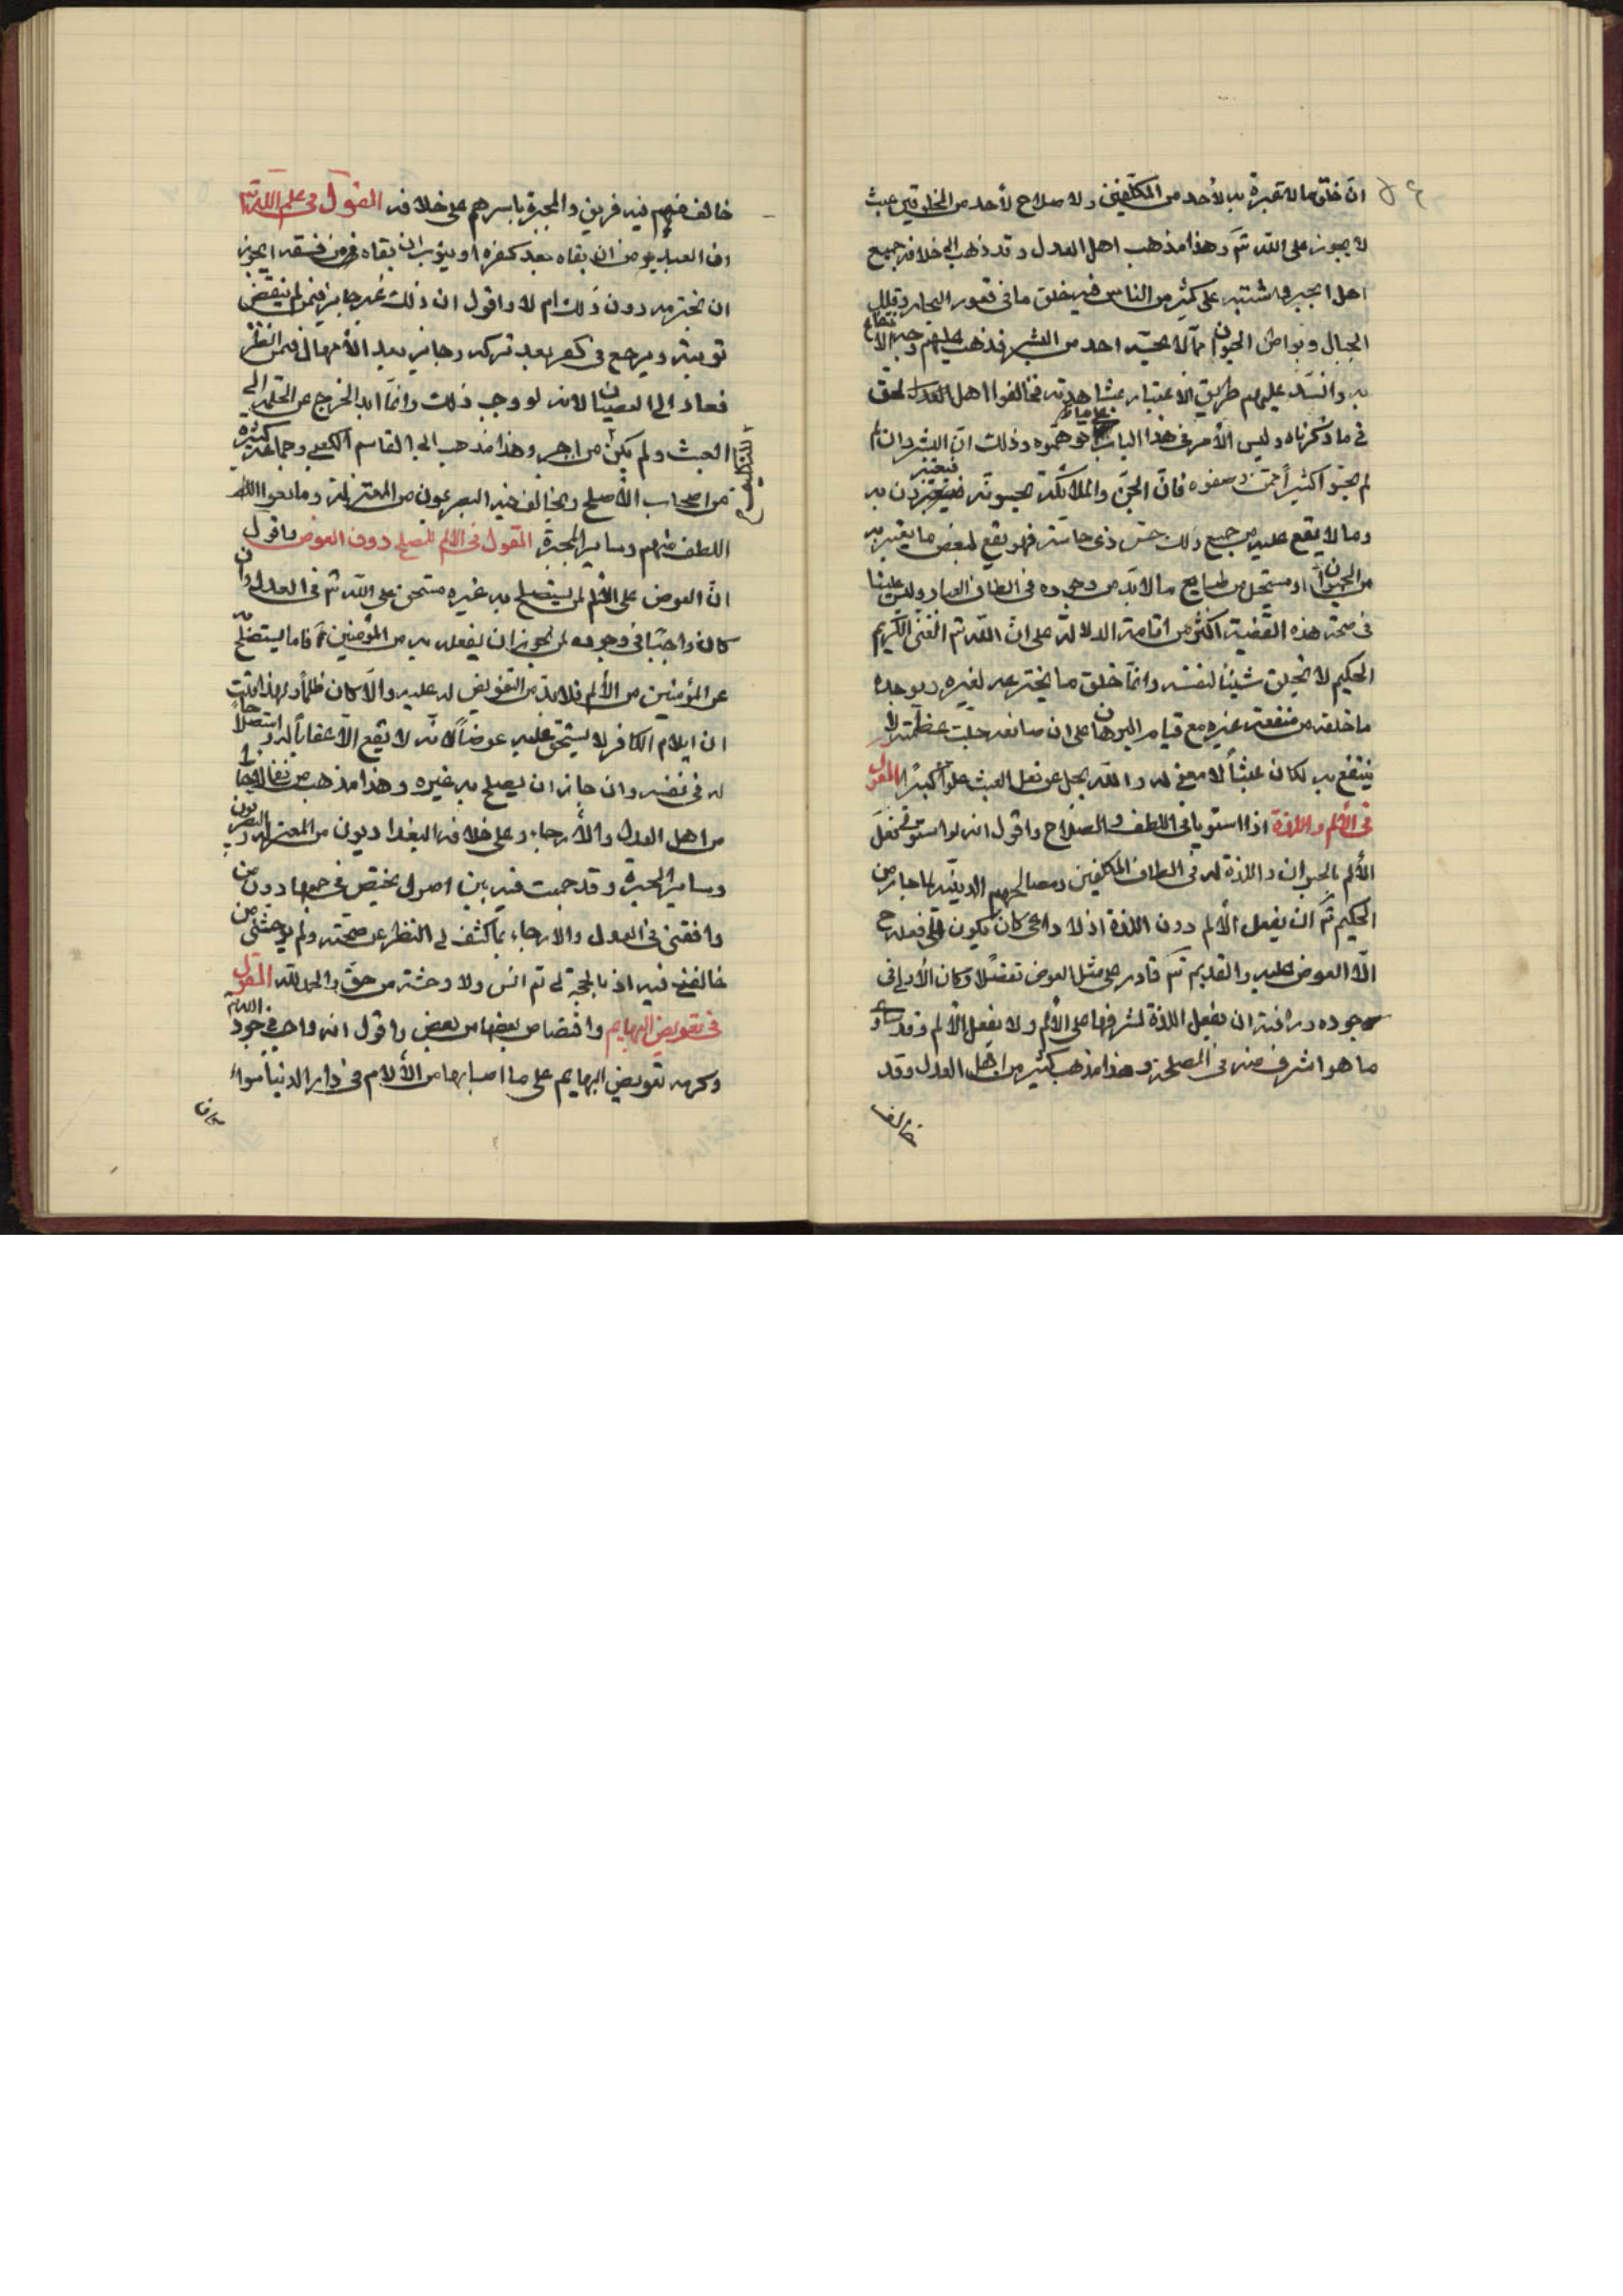 ان خلق ما لا عبرة به لأحد من المكلفين ولا صلاح لأحد من المخلوقين عبث
لا يجوز على الله تم وهذا مذهب اهل العدل وقد ذهب الى خلافه جميع
اهل الجبر واشتبه على كثير من الناس فيه خلق ما في قعور البحار وقلل
الجبال وبواطن الحيوان مما لا يحسه احد من البشر فذهب عليهم وجه الانتفاع
به وانسد عليهم طريق الاعتبار بمشاهدته فخالفوا اهل العدل
في ما ذكرناه وليس الأمر في هذا الباب على ما توهموه وذلك ان البشر وان
لم يحسوا كثيراً مما وصفوه فان الجن والملائكة يحسونه فيعتبرون به
وما لا يقع عليه من جميع ذلك حس ذي حاسة فهو يقع لبعض ما يعتبر به
من الحيوان او مستحيل من طبايع ما لا بد من وجوده في الطاف العباد وليس علينا
في صحة هذه القضية اكثر من اقامة الدلالة على ان الله تم الغني الكريم
الحكيم لا يخلق شيئا لنفسه وانما خلق ما يخترعه لغيره ويوجده
ما خلقه من منفعة غيره مع قيام البرهان على ان صانعه جلت عظمته لا
ينتفع به لكان عبثاً لا معنى له والله يجل عن فعل العبث علوا كبيرا القول
في الألم واللذة اذا استويا في اللطف والصلاح واقول انه لو استوى فعل
الألم بالحيوان واللذة له في الطاف المكلفين ومصالحهم الدينية لما جاز من
الحكيم تم ان يفعل الألم دون اللذة اذ لا داعي كان يكون الى فعله ح
الا العوض عليه والقديم تم قادر على مثل العوض تفضلا وكان الأولى في
جوده ورافته ان يفعل اللذة لشرفها على الألم ولا يفعل الألم وقد ساوى
ما هو اشرف منه في المصلحة وهذا مذهب كثير من اهل العدل وقد
خالف
خالف منهم فيه فريق والمجبرة باسرهم على خلافه القول في علم الله تم
ان العبد يؤمن ان بقاه بعد كفره او يتوب ان بقاه من فسقه ايجوز
ان يخترمه دون ذلك ام لا واقول ان ذلك غير جايز فيمن لم ينقض
توبته ويرجع في كفره بعد تركه وجايز بعد الأمهال فيمن انظر
فعاد الى العصيان لانه لو وجب ذلك دائما ابدا لخرج عن الحكمة الى
العبث ولم يكن للتكليف اجر وهذا مذهب ابي القاسم الكعبي وجماعة كثيرة
من اصحاب الأصلح ويخالف فيه البصريون من المعتزلة ومانعوا
اللطف منهم وساير المجبرة القول في الالم للمصلحة دون العوض واقول
ان العوض على الألم لمن يستصلح به غيره مستحق على الله تم في العدل وان
كان واجبًا في وجوده لمن يجوز ان يفعله به من المؤمنين فاما ما يستصلح به
غير المؤمنين من الألم فلا بد من التعويض له عليه والا كان ظلماً ولهذا قلت
ان ايلام الكافر لا يستحق عليه عوضاً لانه لا يقع الا عقاباً له واستصلاحا
له في نفسه وان جاز ان يصلح به غيره وهذا مذهب من نفى الاحباط
من اهل العدل والأرجاء وعلى خلافه البغداديون من المعتزلة والبصريون
وساير المجبرة وقد جمعت فيه بين اصول يختص في جمعها دون من
وافقني في العدل والارجاء بما كشف لي النظر عن صحته ولم يوحشني من
خالفني فيه اذ بالحجة لي تم انس ولا وحشة من حق والحمد لله القول
في تعويض البهايم واقتصاص بعضها من بعض واقول انه واجب في جود الله تم
وكرمه تعويض البهايم على ما اصابها من الألام في دار الدنيا سواء